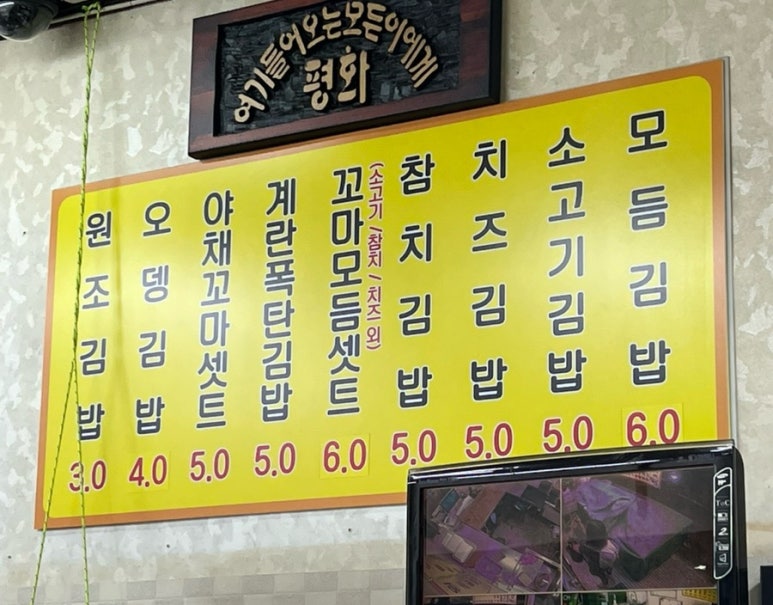 여기들어오는모든이에게
평화
원조김밥
3.0
오뎅김밥
4.0
야채꼬마셋트
5.0
계란폭탄김밥
5.0
꼬마모듬셋트
(소고기/참치/치즈 외)
6.0
참치김밥
5.0
치즈김밥
5.0
소고기김밥
5.0
모듬김밥
6.0